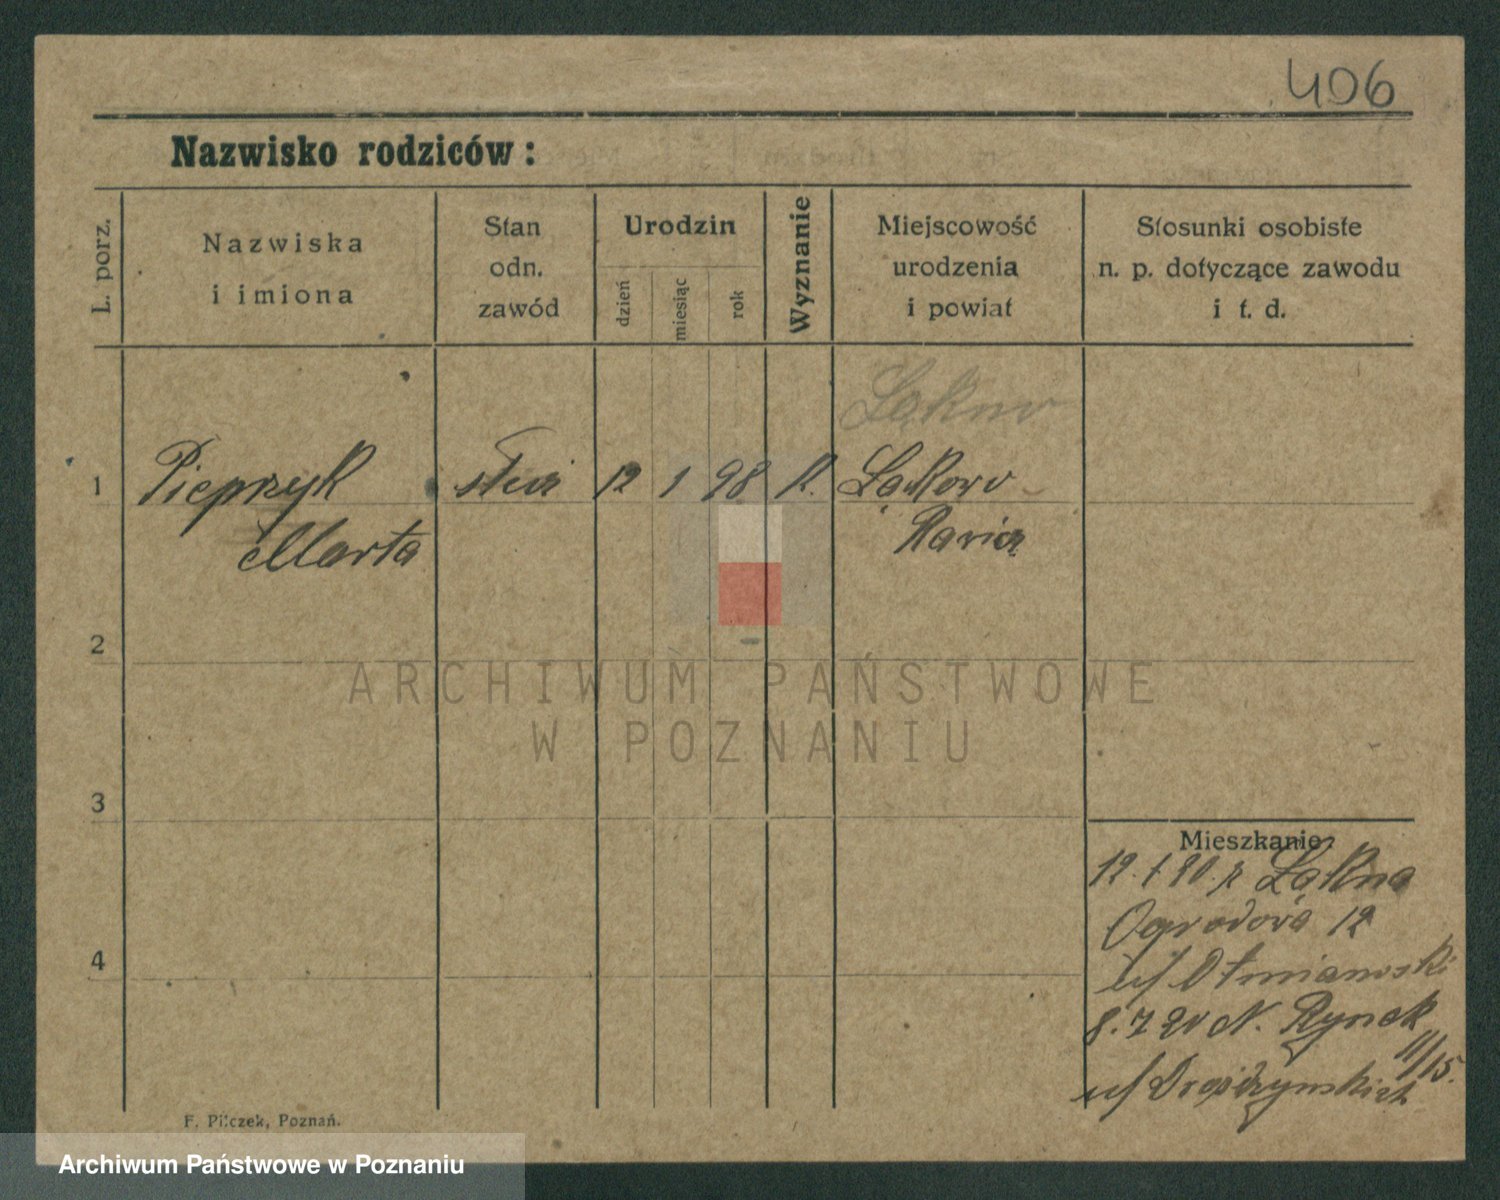 406
Nazwisko rodziców:
L. porz.
Nazwiska
i imiona
Stan
odn.
zawód
Urodzin
dzień
miesiąc
rok
Wyznanie
Miejscowość
urodzenia
i powiat
Stosunki osobiste
n. p. dotyczące zawodu
i t. d.
1
Pieprzyk
Marta
12 1 98 K.
Łąkowo
2
3
4
Mieszkanie:
12. 1 20. z Łąkna
Ogrodowa 12
8. 7 20 N. Rynek
11/15.
F. Pilczek, Poznań.
ARCHIWUM PAŃSTWOWE
W POZNANIU
Archiwum Państwowe w Poznaniu